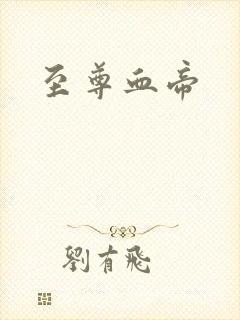 至尊血帝
劉有飛